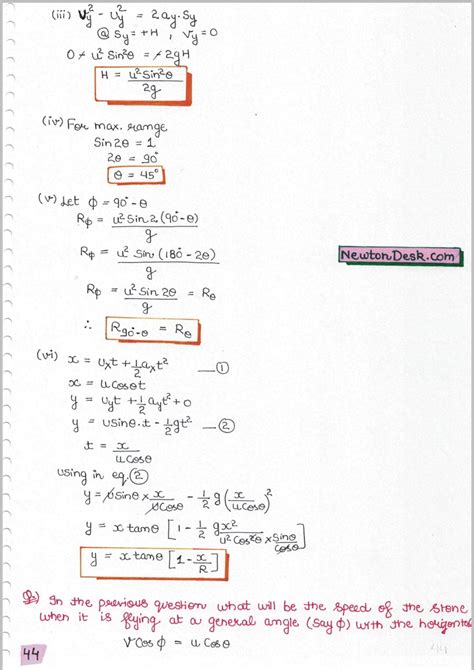 (iii) Vy² - Uy² = 2ay.Sy
@ Sy = +H , Vy = 0
0 - u² Sin²θ = -2gH
H = u² Sin²θ / 2g
(iv) For max. range
Sin2θ = 1
2θ = 90°
θ = 45°
(v) Let ϕ = 90° - θ
Rϕ = u² Sin 2 (90° - θ) / g
Rϕ = u² Sin (180° - 2θ) / g
NewtonDesk.com
Rϕ = u² Sin 2θ / g = Rθ
∴ R90°-θ = Rθ
(vi) x = uxt + 1/2 axt² —①
x = u cosθt
y = uyt + 1/2 ayt² + 0
y = usinθ.t - 1/2 gt² —②
t = x / u cosθ
using in eq. ②
y = u sinθ × x / u cosθ - 1/2 g (x / u cosθ)²
y = x tanθ [1 - 1/2 gx² / u² cos²θ × sinθ / cosθ]
y = x tanθ [1 - x/R]
Q) In the previous question what will be the speed of the stone
when it is flying at a general angle (say ϕ) with the horizontal
V Cos ϕ = u Cos θ
44